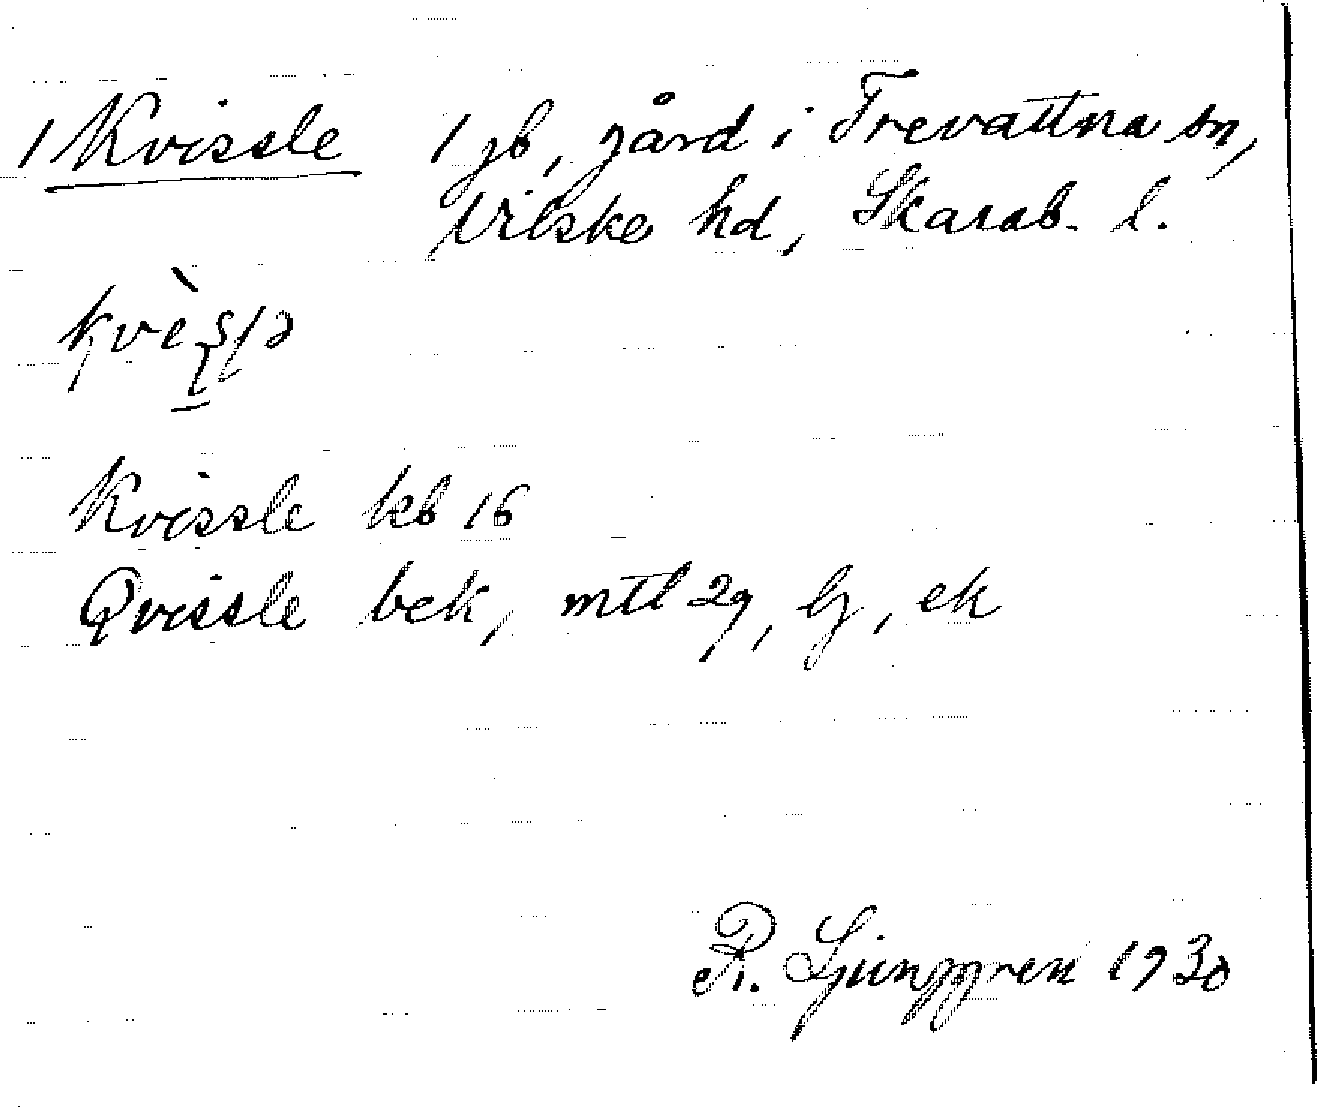 1 Kvissle 1 gb, gård i Trevattna sn,
Vilske hd, Skarab. l.
Kvissle kb 16
Qvissle bek, mtl 29, lj, ek
R. Ljunggren 1930